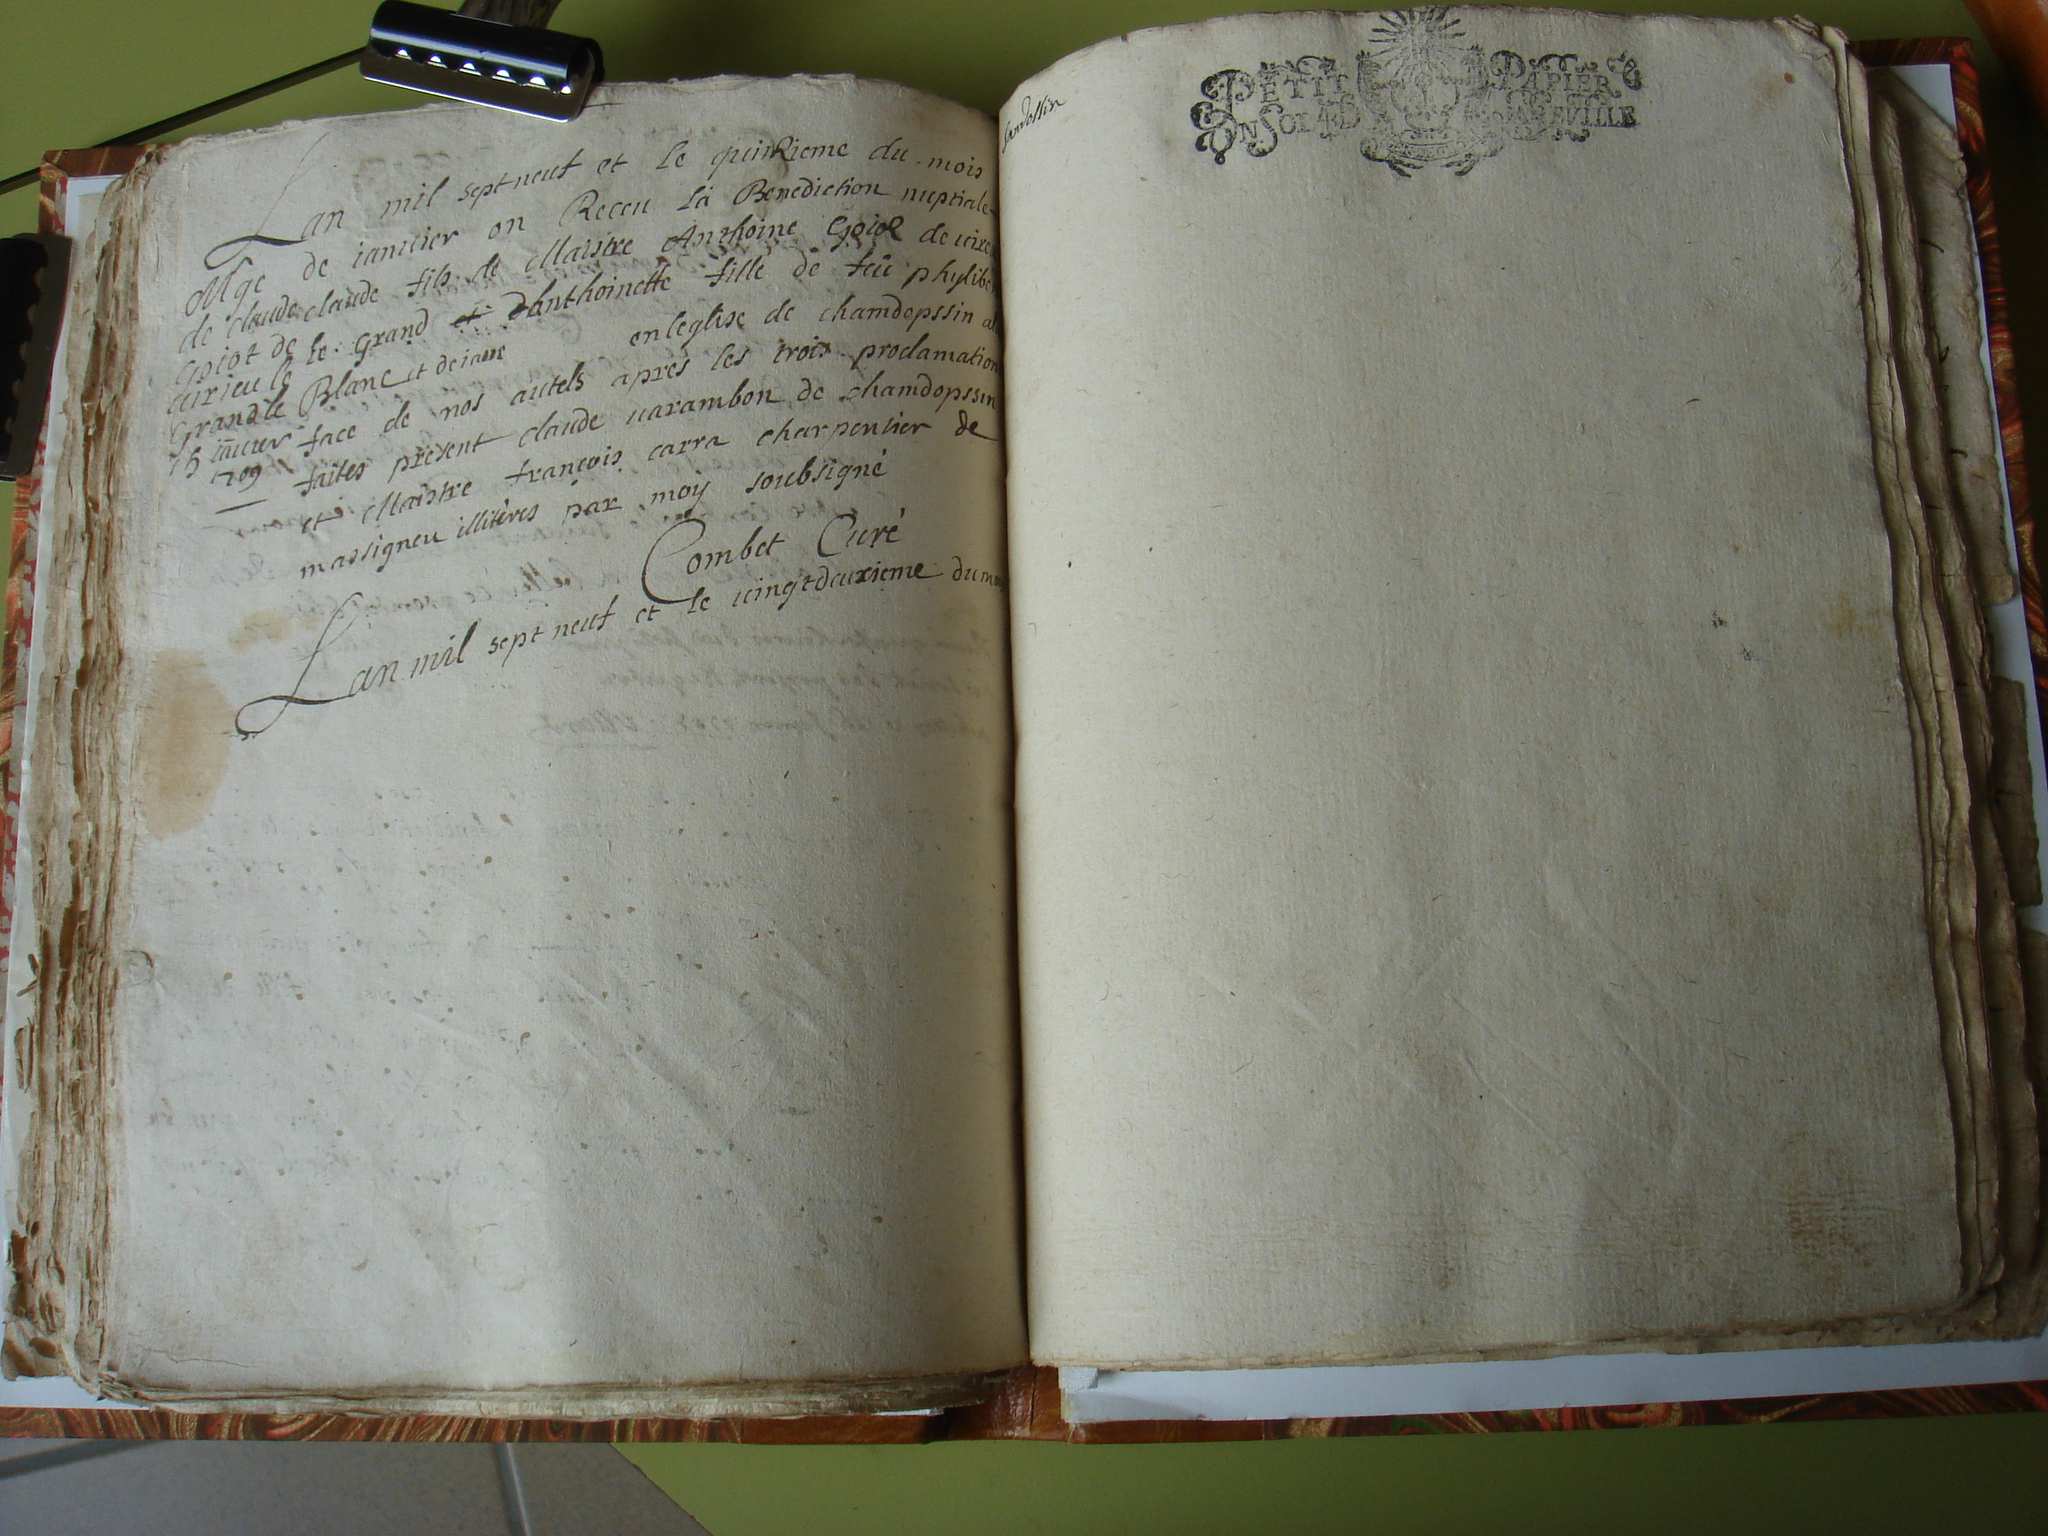 Lan mil sept neuf et le quinzieme du mois
de ianuier on Receu la Benediction nuptiale
claude fils de Maistre Anthoine Goiot de uirieu
le Grand et danthoinette fille de feu phylibe
Blanc et de iane en leglise de chamdopssin a
face de nos autels apres les trois proclamation
faites present claude uarambon de chamdopssin
et Maistre francois carra charpentier de
massigneu illiteres par moy soubsigné
Combet Curé
Lan mil sept neuf et le uingtdeuxieme du mo
Mge
de claude
Goiot de
uirieu le
Grand le
15 ianuier
709
PETIT PAPIER